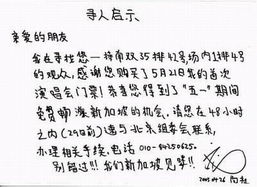 寻人启示
亲爱的朋友
我在寻找您——持有双35排42号场内1排4号
的观众，感谢您购买了5月21日我的首次
演唱会门票！恭喜您得到了"五一"期间
免费畅游新加坡的机会，请您在48小时
之内(29日前)速与北京组委会联系，
办理相关手续，电话 010-64250625.
别错过!!! 我们新加坡见!!!
2005.04.26